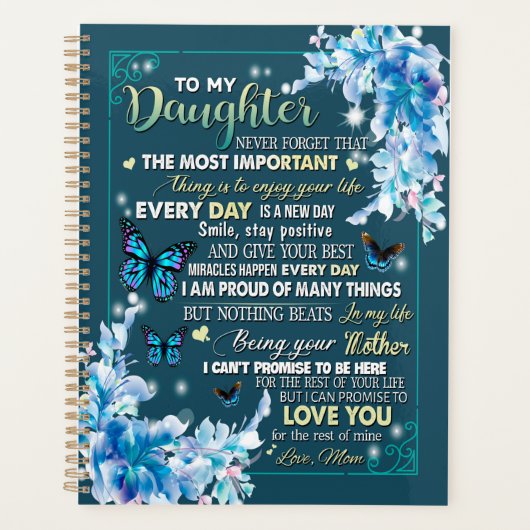 TO MY
Daughter
NEVER FORGET THAT
THE MOST IMPORTANT
Thing is to enjoy your life
EVERY DAY IS A NEW DAY
Smile, stay positive
AND GIVE YOUR BEST
MIRACLES HAPPEN EVERY DAY
I AM PROUD OF MANY THINGS
BUT NOTHING BEATS In my life
Being your Mother
I CAN'T PROMISE TO BE HERE
FOR THE REST OF YOUR LIFE
BUT I CAN PROMISE TO
LOVE YOU
for the rest of mine
Love, Mom